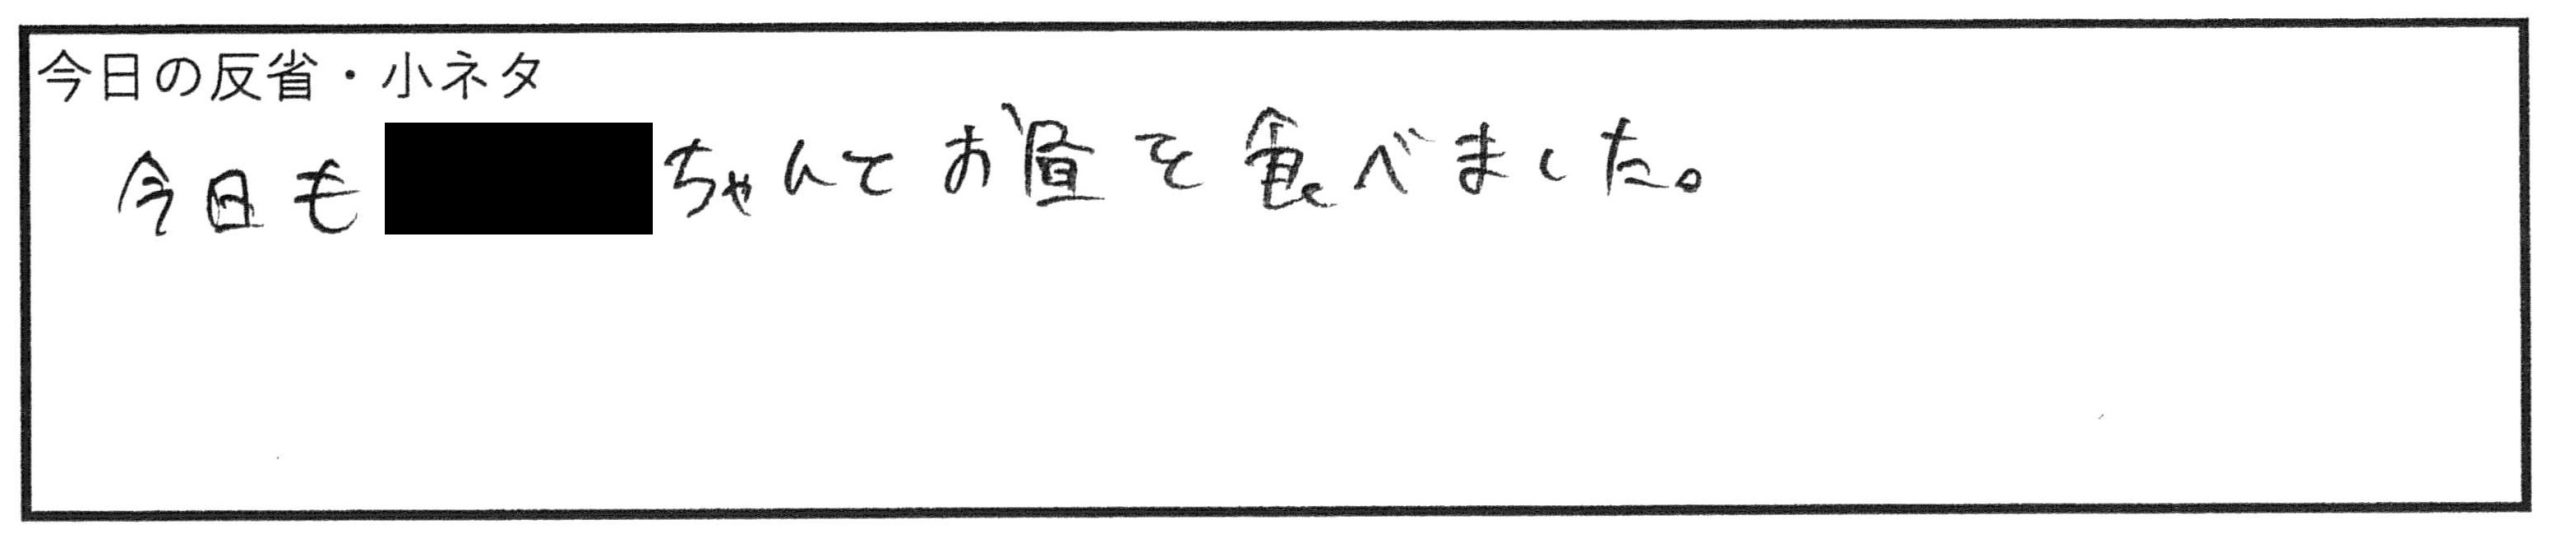 今日の反省・小ネタ
今日も ちゃんとお昼を食べました。